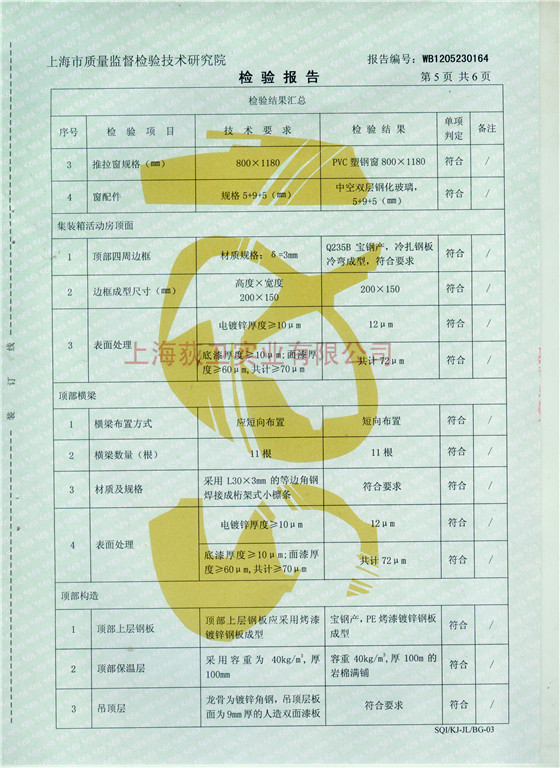 上海市质量监督检验技术研究院 报告编号：WB1205230164
检验报告 第 5 页 共 6 页
检验结果汇总
序号 检 验 项 目 技 术 要 求 检 验 结 果 单项判定 备注
3 推拉窗规格（㎜） 800×1180 PVC 塑钢窗 800×1180 符合 /
4 窗配件 规格 5+9+5（㎜） 中空双层钢化玻璃，
5+9+5（㎜） 符合 /
集装箱活动房顶面
1 顶部四周边框 材质规格：δ=3mm Q235B 宝钢产，冷扎钢板
冷弯成型，符合要求 符合 /
2 边框成型尺寸（㎜） 高度×宽度
200×150 200×150 符合 /
3 表面处理 电镀锌厚度≥10μm 12μm 符合 /
底漆厚度≥10μm;面漆厚
度≥60μm,共计≥70μm 共计 72μm 符合 /
上海荻 实业有限公司
顶部横梁
1 横梁布置方式 应短向布置 短向布置 符合 /
2 横梁数量（根） 11 根 11 根 符合 /
3 材质及规格 采用 L30×3mm 的等边角钢
焊接成桁架式小檩条 符合要求 符合 /
4 表面处理 电镀锌厚度≥10μm 12μm 符合 /
底漆厚度≥10μm;面漆厚
度≥60μm,共计≥70μm 共计 72μm 符合 /
顶部构造
1 顶部上层钢板 顶部上层钢板应采用烤漆
镀锌钢板成型 宝钢产，PE 烤漆镀锌钢板
成型 符合 /
2 顶部保温层 采用容重为 40kg/m³,厚
100mm 容重 40kg/m³,厚 100m 的
岩棉满铺 符合 /
3 吊顶层 龙骨为镀锌角钢，吊顶层板
面为 9mm 厚的人造双面漆板 符合要求 符合 /
SQI/KJ-JL/BG-03
装 订 线